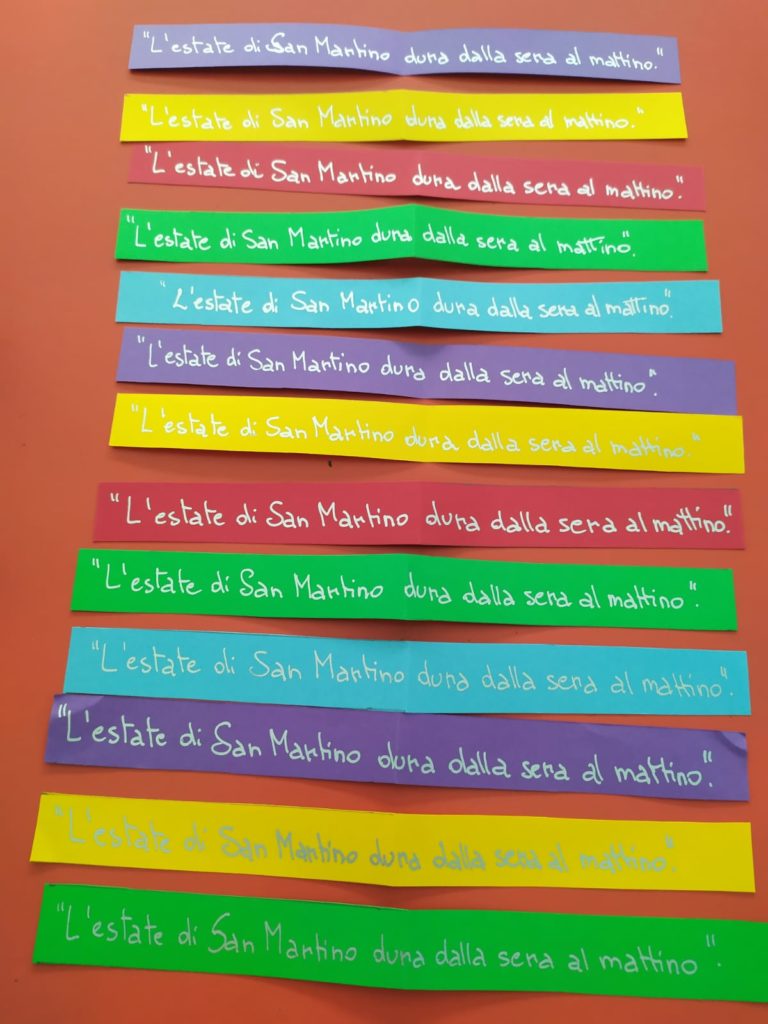 "L'estate di San Martino dura dalla sera al mattino."
"L'estate di San Martino dura dalla sera al mattino."
"L'estate di San Martino dura dalla sera al mattino".
"L'estate di San Martino dura dalla sera al mattino".
"L'estate di San Martino dura dalla sera al mattino".
"L'estate di San Martino dura dalla sera al mattino".
"L'estate di San Martino dura dalla sera al mattino."
"L'estate di San Martino dura dalla sera al mattino".
"L'estate di San Martino dura dalla sera al mattino".
"L'estate di San Martino dura dalla sera al mattino".
"L'estate di San Martino dura dalla sera al mattino".
"L'estate di San Martino dura dalla sera al mattino".
"L'estate di San Martino dura dalla sera al mattino".